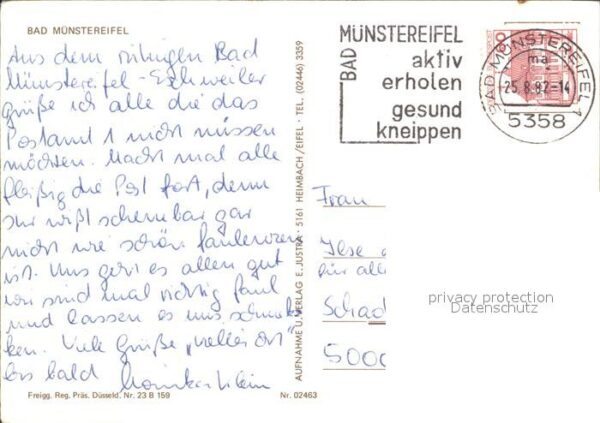 BAD MÜNSTEREIFEL
Aus dem ruhigen Bad
Münstereifel-Eschweiler
grüße ich alle die das
Postamt 1 nicht müssen
möchten. Macht mal alle
fleißig die Post fort, denn
Ihr wißt scheinbar gar
nicht wie schön faulenzen
ist. Uns geht es allen gut
wir sind mal richtig faul
und lassen es uns schmek-
ken. Viele Grüße
bis bald
Freigg. Reg. Präs. Düsseld. Nr. 23 B 159
Nr. 02463
AUFNAHME U. VERLAG E. JUSTRA · 5161 HEIMBACH/EIFEL · TEL. (02446) 3359
BAD
MÜNSTEREIFEL
aktiv
erholen
gesund
kneippen
BAD MÜNSTEREIFEL 1
ma
25.8.82-14
5358
Frau
Ilse
für alle
Schad
5000
privacy protection
Datenschutz